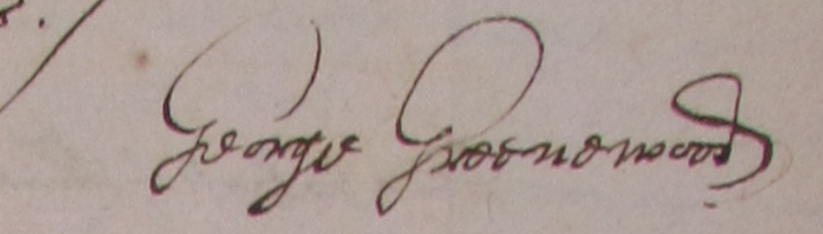 George Greenewood